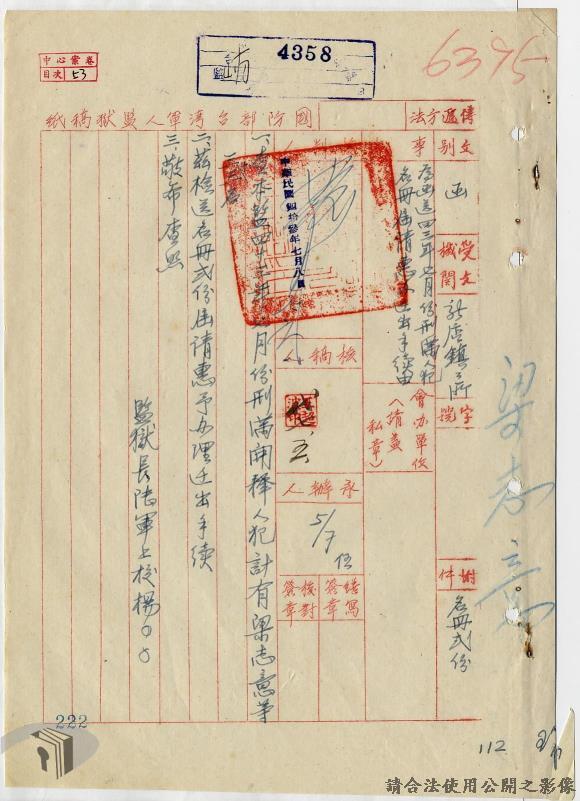 4358
6395
中心案卷
目次 53
國防部台灣軍人監獄稿紙
傳遞方法
文別
函
受文機關
新店鎮公所
字號
附件
名冊弍份
事
為函送四三年七月份刑滿人犯
名冊函請惠予
遷出手續由
會办單位
(請蓋私章)
核稿人
承辦人
5/7
繕寫簽章
校對簽章
中華民國肆拾參年七月八日
一、查本監四十三年七月份刑滿開釋人犯計有梁志意等
二、茲檢送名冊弍份函請惠予办理迁出手續
三、敬希查照
監獄長陸軍上校楊〇〇
梁志意
222
112
請合法使用公開之影像